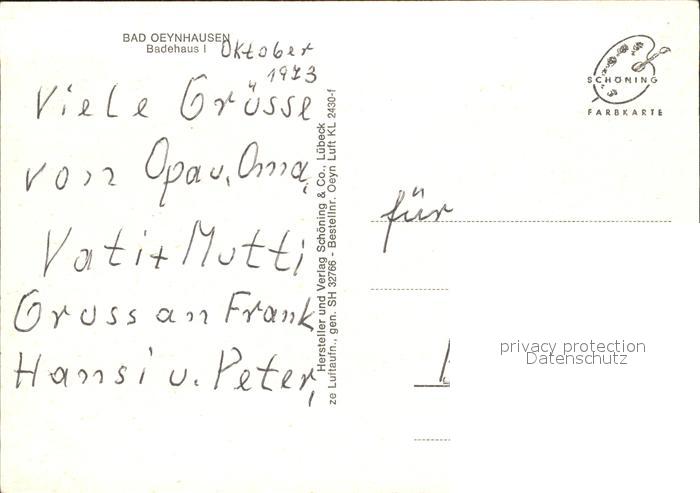 BAD OEYNHAUSEN
Badehaus I
Oktober
1973
Viele Grüsse
von Opa u. Oma,
Vati + Mutti
Gruss an Frank
Hansi u. Peter,
Hersteller und Verlag Schöning & Co., Lübeck
ze Luftaufn., gen. SH 32766 - Bestellnr. Oeyn Luft KL 2430-f
SCHÖNING
FARBKARTE
für
privacy protection
Datenschutz